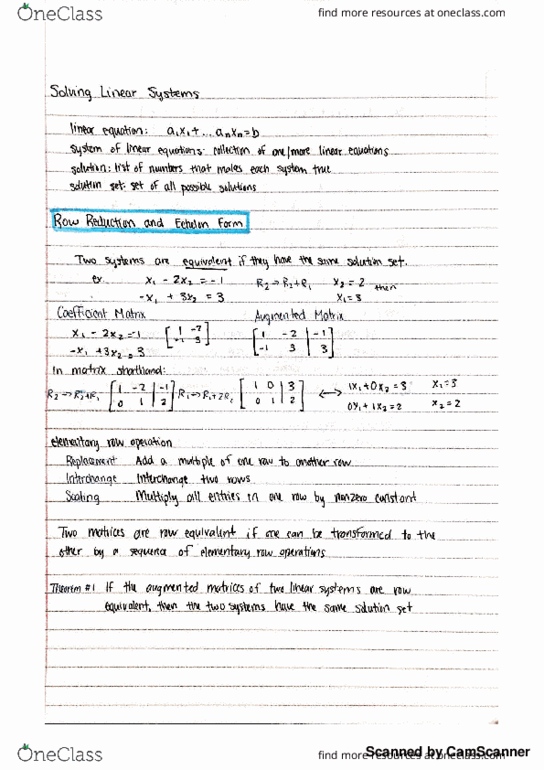 OneClass
find more resources at oneclass.com
Solving Linear Systems
linear equation: a₁x₁+...aₙxₙ=b
system of linear equations: collection of one/more linear equations
solution: list of numbers that makes each system true
solution set: set of all possible solutions
Row Reduction and Echelon Form
Two systems are equivalent if they have the same solution set.
ex. x₁ - 2x₂ = -1 R₂→R₂+R₁ x₂ = 2 then
-x₁ + 3x₂ = 3 x₁ = 3
Coefficient Matrix Augmented Matrix
x₁ - 2x₂ = -1 [ 1 -2 ] [ 1 -2 | -1 ]
-x₁ + 3x₂ = 3 [ -1 3 ] [ -1 3 | 3 ]
In matrix shorthand:
R₂→R₂+R₁ [ 1 -2 | -1 ] R₁→R₁+2R₂ [ 1 0 | 3 ] ↔ 1x₁+0x₂=3 x₁=3
[ 0 1 | 2 ] [ 0 1 | 2 ] 0x₁+1x₂=2 x₂=2
elementary row operation
Replacement Add a multiple of one row to another row
Interchange Interchange two rows
Scaling Multiply all entries in one row by nonzero constant
Two matrices are row equivalent if one can be transformed to the
other by a sequence of elementary row operations
Theorem #1 If the augmented matrices of two linear systems are row
equivalent, then the two systems have the same solution set
OneClass
find more resources at oneclass.com
Scanned by CamScanner